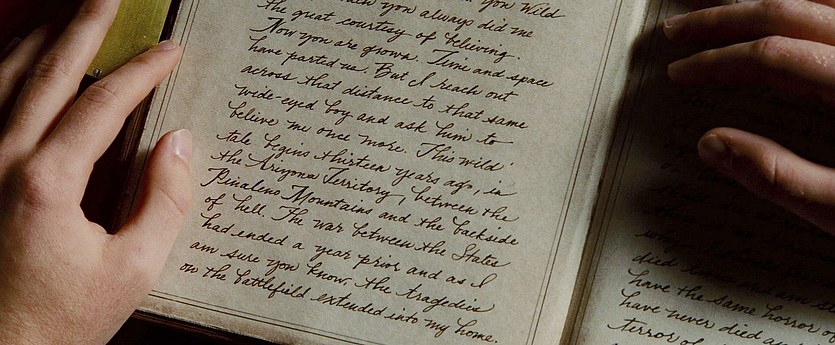 which you always did me
you wild
the great courtesy of believing.
Now you are grown. Time and space
have parted us. But I reach out
across that distance to that same
wide-eyed boy and ask him to
believe me once more. This wild
tale begins thirteen years ago, in
the Arizona Territory, between the
Pinaleno Mountains and the backside
of hell. The war between the States
had ended a year prior and as I
am sure you know, the tragedies
on the battlefield extended into my home.
died
have the same horror
have never died a
terror of